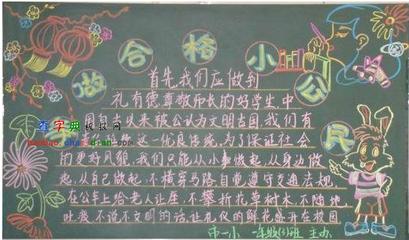 做合格小公民
首先我们应做到
礼貌尊敬师长的好学生中
国自古以来被公认为文明古国我们有
这一优良传统,为了保证社会
的更好风貌,我们只能从小事做起,从身边做
起,从自己做起,不横穿马路自觉遵守交通法规,
在公车上给老人让座,不攀折花草树木,不随地
吐痰不说不文明的话,让礼仪的鲜花盛开在校园
市一小 一年级(3)班 主办